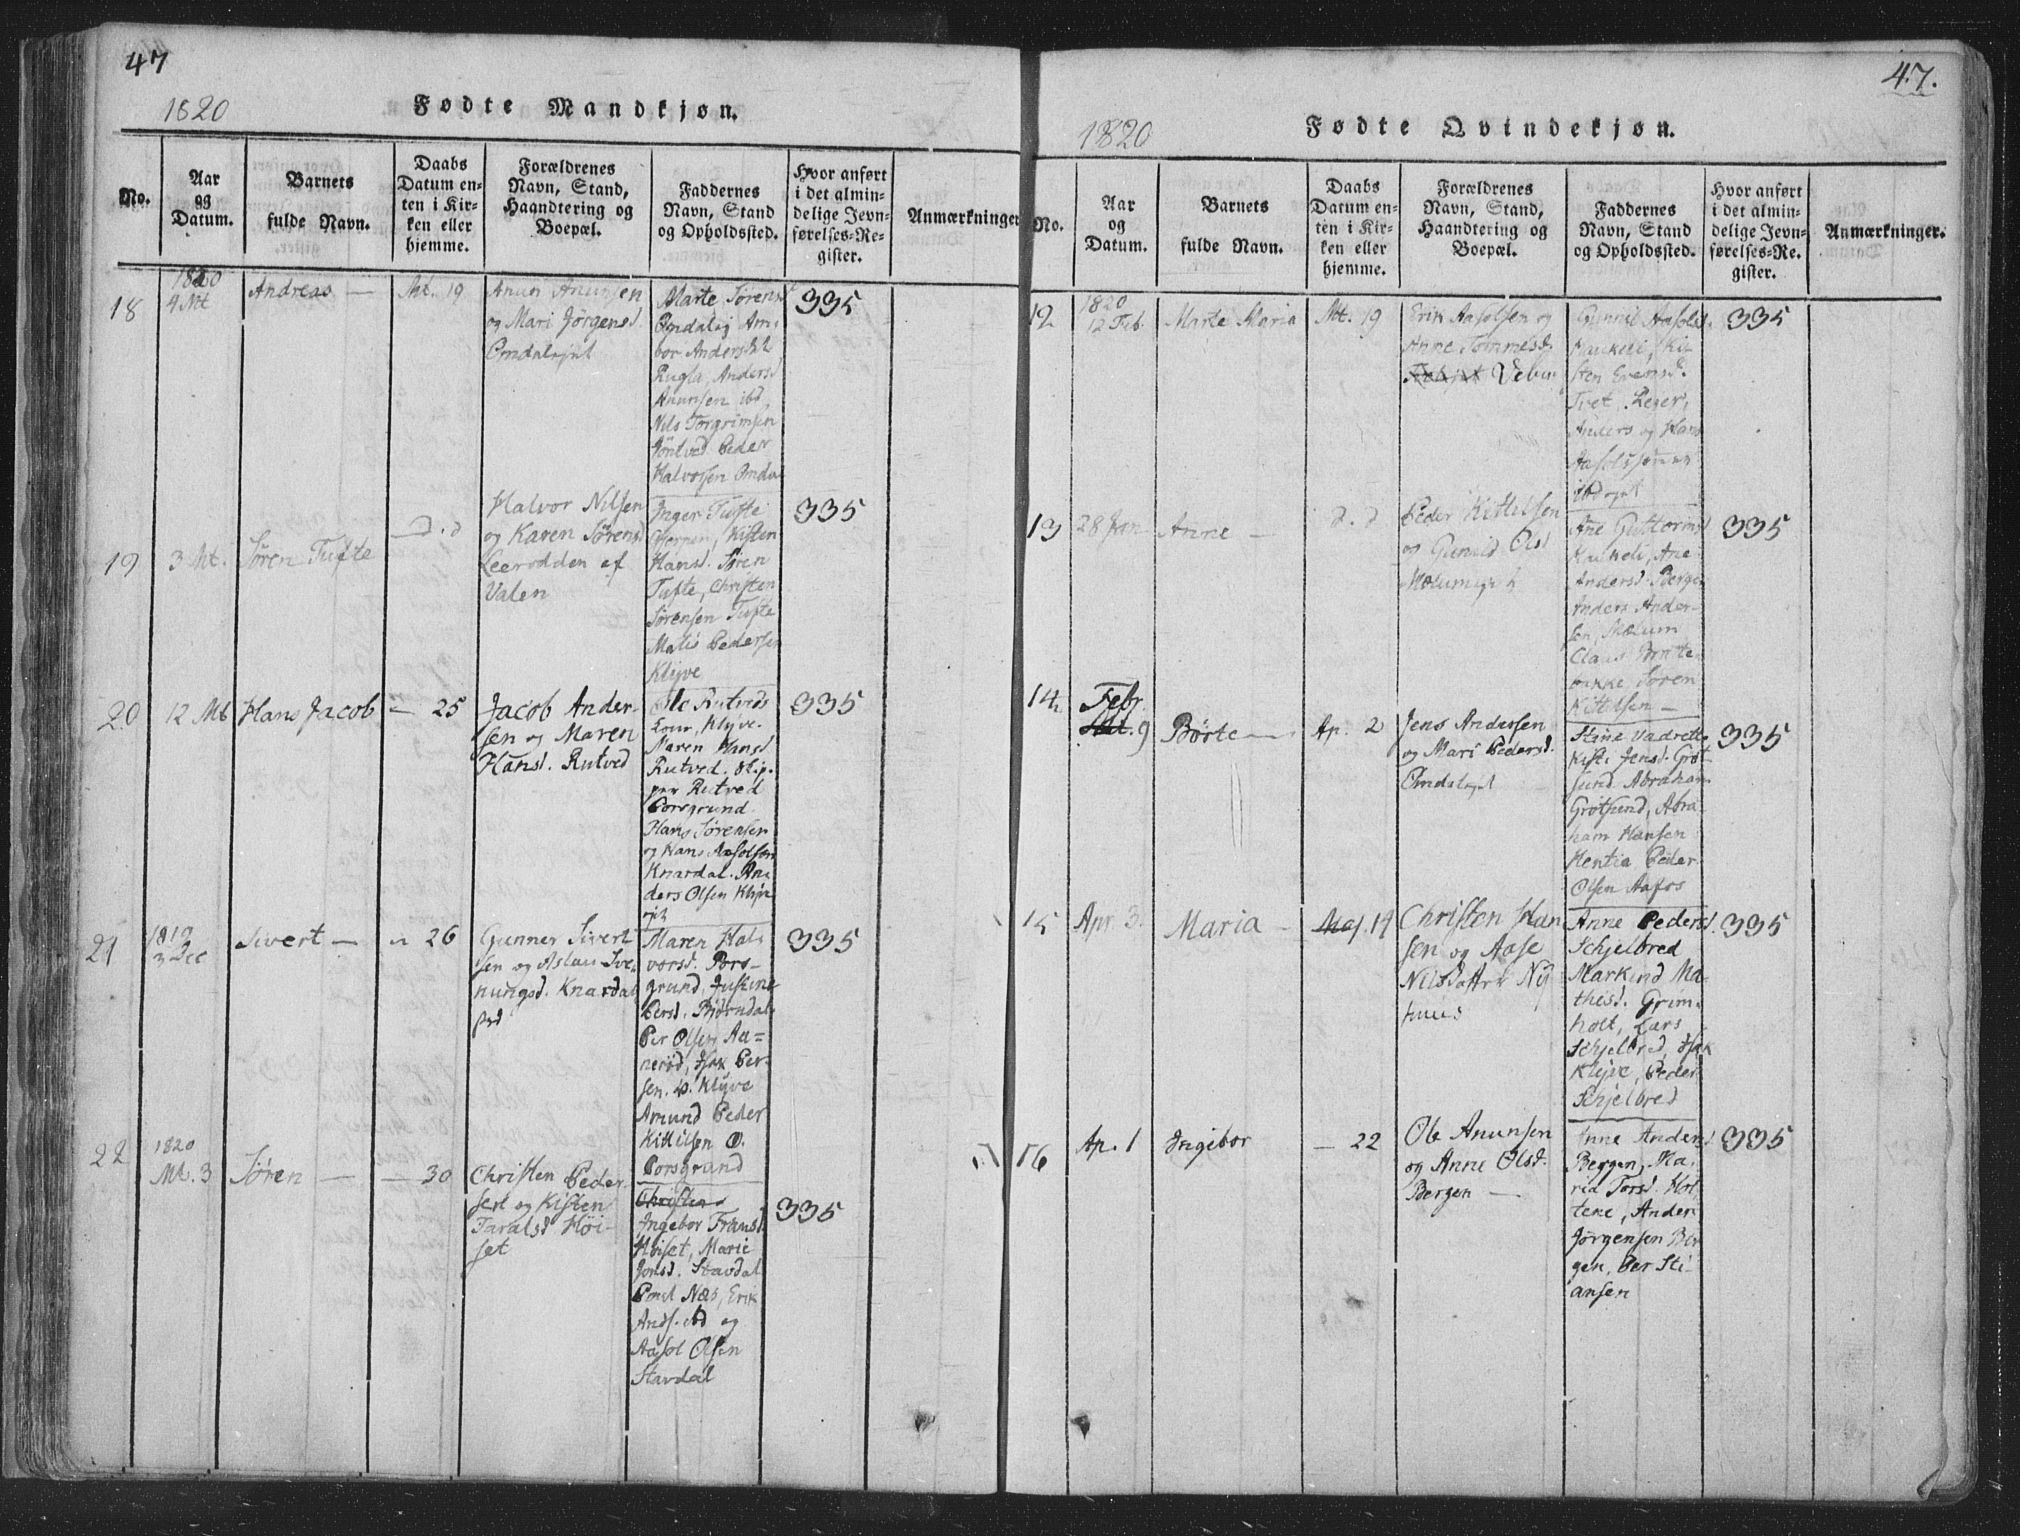 47
1820
Fødte Mandkjøn.
No.
Aar
og
Datum.
Barnets
fulde Navn.
Daabs
Datum en-
ten i Kir-
ken eller
hjemme.
Forældrenes
Navn, Stand,
Haandtering og
Boepæl.
Faddernes
Navn, Stand
og Opholdssted.
Hvor anført
i det almin-
delige Jevn-
førelses-Re-
gister.
Anmærkninger
18
1820
4 Mt
Andreas —
Mt. 19
Anun Anunsen
og Mari Jørgensd
Omdalsejet
Marte Sørensd
Omdalsej Am-
bor Andersdt
Rugla, Anders
Anunsen ibd,
Nils Torgrimsen
Jöntved Peder
Halvorsen Omdal
335
19
3 Mt.
Søren Tufte
D. d
Halvor Nilsen
og Karen Sørensd
Leerodden af
Valen
Inger Tufte
Kisten
Hansd. Søren
Tufte, Christen
Sørensen Tufte
Mats Pedersen
Klyve
335
20
12 Mt
Hans Jacob
— 25
Jacob Ander-
sen og Maren
Hansd. Rutved
Ole Rutveds
Kone, Klyve.
Maren Hansd
Rutved. Skip-
per Rutved
Porsgrund.
Hans Sørensen
og Hans Aasolsen
Knardal. An-
ders Olsen Klyve
ejet
335
21
1819
3 Dec
Sivert —
" 26
Gunner Sivert
sen og Aslau Sve-
nungsd. Knardal
Maren Hal-
vorsd. Pors-
grund, Justine
Persd. Bjørndal
Per Olsen Aa-
nerød, Isak Per-
sen. Klyve
Amund Peder
Kittilsen
Porsgrund
335
22
1820
Mt. 3
Søren —
— 30
Christen Peder
sen og Kisten
Taralsd Höi-
set
Christen
Ingebor Fransd
Höiset, Marie
Jonsd. Stavdal
Poul Næs, Erik
Ands. ibd og
Aasol Olsen
Stavdal
335
47.
1820
Fødte Qvindekjøn.
No.
Aar
og
Datum.
Barnets
fulde Navn.
Daabs
Datum en-
ten i Kir-
ken eller
hjemme.
Forældrenes
Navn, Stand,
Haandtering og
Boepæl.
Faddernes
Navn, Stand
og Opholdssted.
Hvor anført
i det almin-
delige Jevn-
førelses-Re-
gister.
Anmærkninger.
12
1820
12 Feb.
Marte Maria
Mt. 19
Erik Aasolsen og
Anne Tommesd.
Gunnil Aasolsd.
Haukeli, Ki-
sten Evensd.
Tvet, Peger,
Anders og Hans
Aasolssønner
335
13
28 Jan
Anne —
D. d
Peder Kittelsen
og Gunnild Olsd
Mælumejet
Ane Guttormsd
Haukeli, Ane
Andersd. Bergen
Anders Ander-
sen, Mælum
Claus Bratte-
bakke Søren
Kittelsen —
335
14
Febr.
9
Børte —
Ap. 2
Jens Andersen
og Mari Pedersd.
Omdalsejet
Stine Vadrette
Kisti Jensd. Grøt-
sund Abraham
Grøtsund, Abra-
ham Hansen
Hentia Peder
Olsen Aafos
335
15
Apr 3.
Maria —
Maj. 19
Christen Han
sen og Aase
Nilsdatter Ny
huus
Anne Pedersd.
Schjelbred
Mark ind Ma-
thesd. Grim-
holt, Lars
Schjelbred, Isak
Klyve, Peder
Schjelbred
335
16
Ap. 1
Ingebor
— 22
Ole Anunsen
og Anne Olsd.
Bergen —
Anne Andersd
Bergen, Ma-
ria Torsd. Hol-
tene, Anders
Jørgensen Ber-
gen, Per Sti-
ansen
335